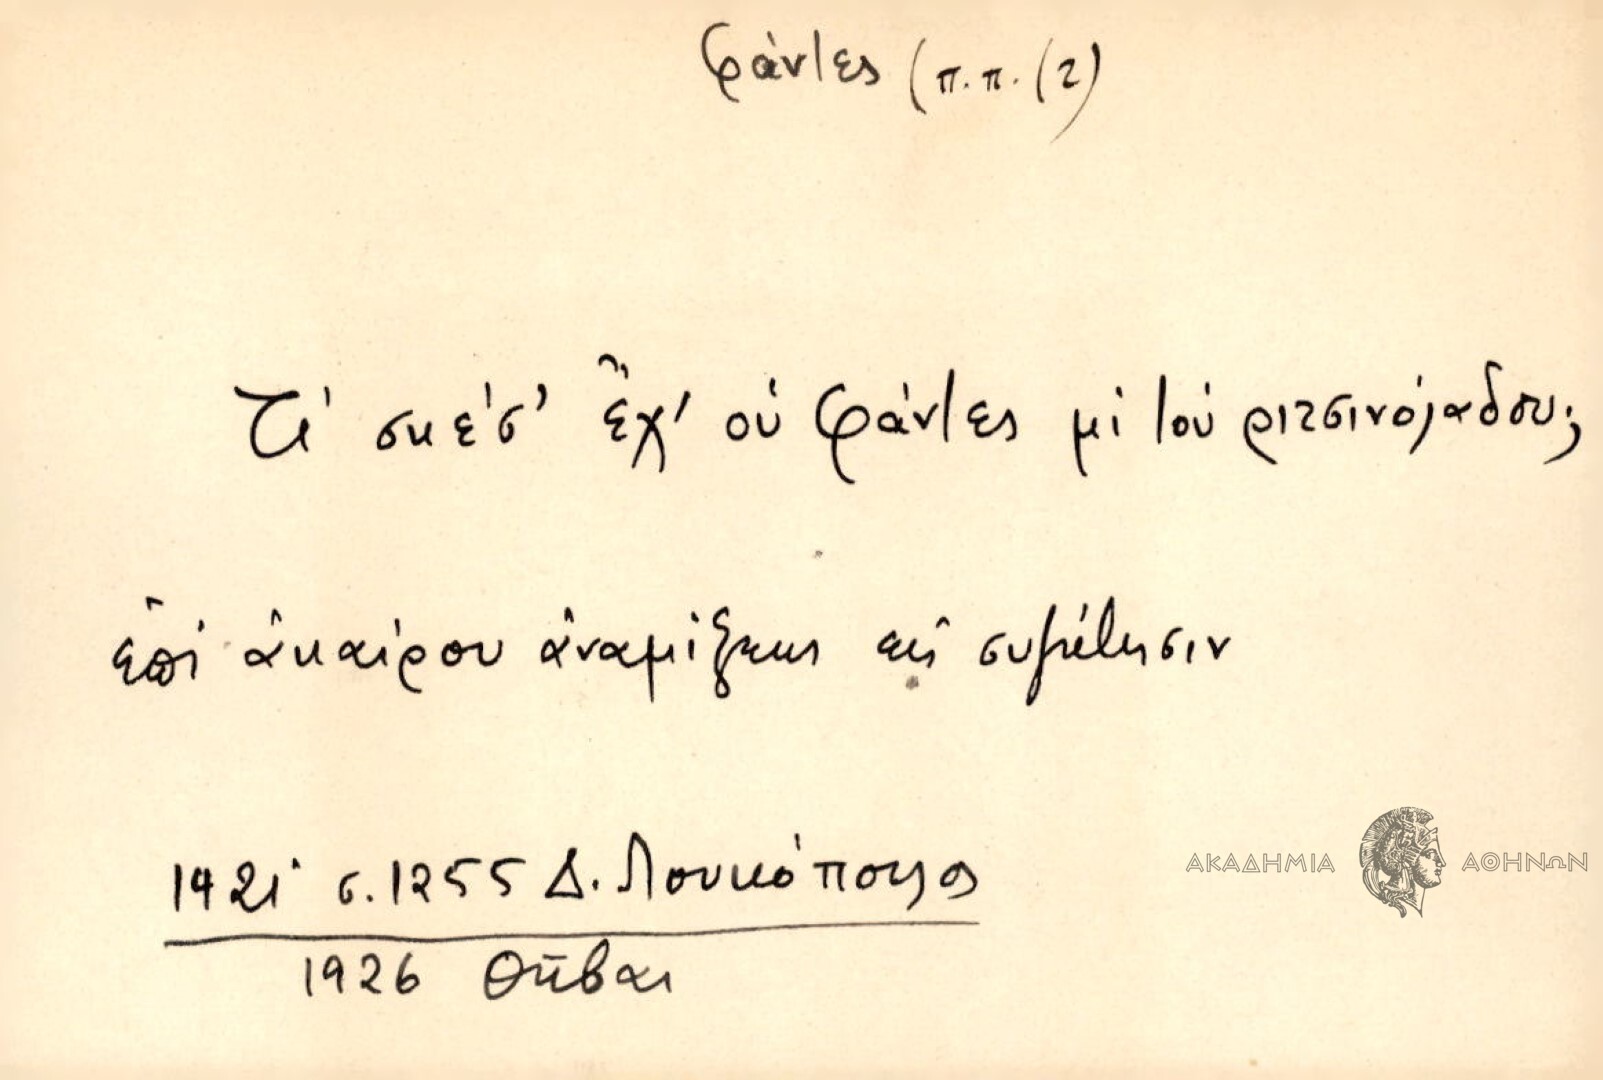 φάντες (π.π. (2)
Τί σκέσ' ἔχ' οὑ φάντες μὶ τοὺ ριτσινόλαδου;
ἐπὶ ἀκαίρου ἀναμίξεως εἰς συζήτησιν
1421 σ. 1255 Δ. Λουκόπουλος
1926 Θῆβαι
ΑΚΑΔΗΜΙΑ ΑΘΗΝΩΝ